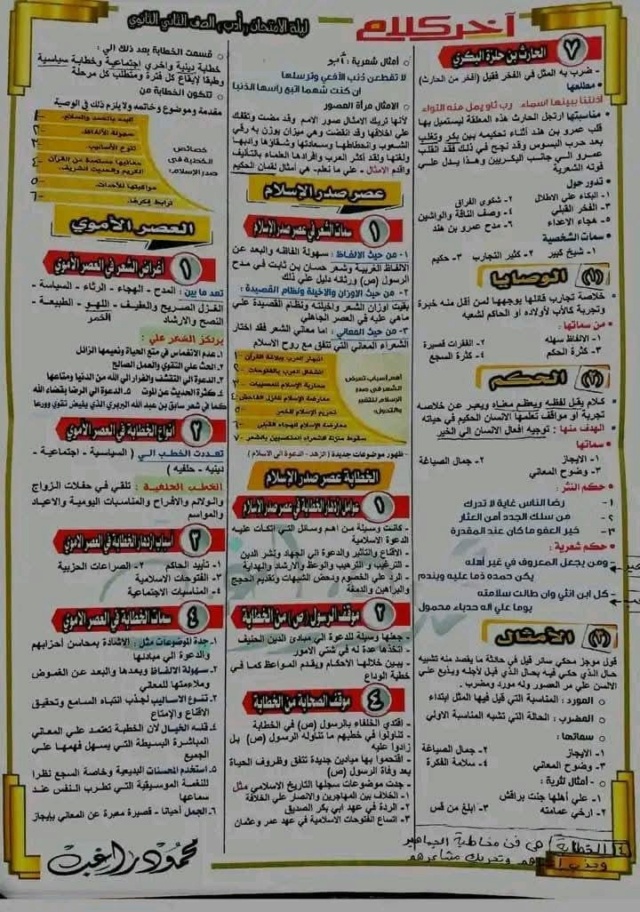 آخر كلام
ليلة الامتحان (أدب) الصف الثاني الثانوي
٧ الحارث بن حلزة اليشكري
- ضرب به المثل في الفخر فقيل (أفخر من الحارث)
• مطلعها
آذنتنا ببينها أسماء رب ثاو يمل منه الثواء
• مناسبتها ارتجل الحارث هذه المعلقة ليستميل بها
قلب عمرو بن هند أثناء تحكيمه بين بكر وتغلب
بعد حرب البسوس وقد نجح في ذلك فقد انقلب
عمرو إلي جانب البكريين وهذا يدل علي
قوته الشعرية
• تدور حول
١- البكاء علي الاطلال ٢- شكوى الفراق
٣- الفخر القبلي ٤- وصف الناقة والواشين
٥- هجاء الاعداء ٦- مدح عمرو بن هند
• سمات الشخصية
١- شيخ كبير ٢- كثير التجارب ٣- حكيم
(١) الوصايا
خلاصة تجارب قائلها يوجهها لمن أقل منه خبرة
وتجربة كالأب لأولاده او الحاكم لشعبه
• من سماتها:
١- الالفاظ سهله ٢- الفقرات قصيرة
٣- كثرة الحكم ٤- كثرة السجع
(٢) الحكم
كلام يقل لفظه ويعظم معناه ويعبر عن خلاصه
تجربة او مواقف تعلمها الانسان الحكيم في حياته
• الهدف منها: توجيه أفعال الانسان الي الخير
• سماتها
١- الايجاز ٢- جمال الصياغة
٣- وضوح المعاني
• حكم النثر:
١- رضا الناس غاية لا تدرك
٢- من سلك الجدد أمن العثار
٣- خير العفو ما كان عند المقدرة
• حكم شعرية:
- ومن يجعل المعروف في غير أهله
يكن حمده ذما عليه ويندم
- كل ابن انثي وان طالت سلامته
يوما علي اله حدباء محمول
(٣) الأمثال
قول موجز محكي سائر قيل في حادثة ما يقصد منه تشبيه
حال الذي حكي فيه بحال الذي قيل لأجله ويذيع علي
الالسن علي مر العصور وله مورد ومضرب.
○ المورد: المناسبة التي قيل فيها المثل ابتداء
○ المضرب: الحالة التي تشبه المناسبة الاولي
○ سماتها:
١- الايجاز ٢- جمال الصياغة
٣- وضوح المعاني ٤- سلامة الفكرة
○ أمثال نثرية:
١- علي أهلها جنت براقش
٢- ارخي عمامته ٣- ابلغ من قس
٤ الخطابة هي فن مخاطبة الجماهير
وجذب وتحريك مشاعرهم
○ أمثال شعرية:
لا تقطعن ذنب الأفعي وترسلها
ان كنت شهما اتبع رأسها الذنبا
○ الامثال مرآة العصور
لأنها تريك الامثال صور الامم وقد مضت وتقفك
علي اخلاقها وقد انقضت وهي ميزان يوزن به رقي
الشعوب وانحطاطها وسعادتها وشقاؤها وادبها
ولغتها وقد أكثر العرب وافردها العلماء بالتأليف
واقدم الامثال - علي ما نعلم- هي أمثال لقمان الحكيم
عصر صدر الإسلام
١ سمات الشعر في عصر صدر الإسلام
١- من حيث الالفاظ: سهولة الفاظه والبعد عن
الالفاظ الغريبة وشعر حسان بن ثابت في مدح
الرسول (ص) ورثائه دليل علي ذلك
٢- من حيث الاوزان والأخيلة ونظام القصيدة:
بقيت اوزان الشعر واخيلته ونظام القصيدة علي
ماهي عليه في العصر الجاهلي
٣- من حيث المعاني: اما معاني الشعر فقد اختار
الشعراء المعاني التي تتفق مع روح الاسلام
أهم أسباب تعرض
الشعر في صدر
الإسلام للتغير
والتحول
١- انبهار العرب ببلاغة القرآن
٢- انشغال العرب بالفتوحات
٣- محاربة الإسلام للعصبيات
٤- معارضة الإسلام للغزل الفاحش
٥- تحريم الإسلام للخمر
٦- معارضة الإسلام للهجاء القبلي
٧- سقوط منزلة الشعراء المتكسبين بالشعر
-ظهور موضوعات جديدة (الزهد - الدعوة الي الاسلام)
الخطابة عصر صدر الإسلام
١ عوامل ازدهار الخطابة في عصر صدر الإسلام
- كانت وسيلة من اهم وسائل التي اتكأت عليه
الدعوة الاسلامية
- الاقناع والتأثير والدعوة الي الجهاد ونشر الدين
- الترغيب و الترهيب والوعظ والارشاد والهداية
- الرد علي الخصوم ودحض الشبهات وتقديم الحجج
والبراهين والدمغة
٢ موقف الرسول (ص) من الخطابة
- جعلها وسيلة للدعوة الي مبادئ الدين الحنيف
- اتخذها عدة له في شتي الامور
- يبين خلالها الاحكام ويقدم المواعظ كما في
خطبة الوداع
٤ موقف الصحابة من الخطابة
- اقتدي الخلفاء بالرسول (ص) في الخطابة
- تناولوا في خطبهم ما تناوله الرسول (ص) بل
زادوا عليه
- اقتحموا بها ميادين جديدة تتفق وظروف الحياة
بعد وفاة الرسول (ص)
- جدت موضوعات سجلها التاريخ الاسلامي مثل
١- الخلاف بين المهاجرين والانصار علي الخلافة
٢- الردة في عهد ابي بكر الصديق
٣- اتساع الفتوحات الاسلامية في عهد عمر وعثمان
○ قسمت الخطابة بعد ذلك الي:
خطابة دينية واخري اجتماعية وخطابة سياسية
وطبقا لايقاع كل فترة ومتطلب كل مرحلة
○ تتكون الخطابة من
مقدمة وموضوع وخاتمه ولا يلزم ذلك في الوصية
خصائص
الخطابة في
صدر الإسلام
١- البدء بالحمد والسلام
٢- سهولة الألفاظ
٣- تنوع الأساليب
٤- معانيها مستمدة من القرآن
الكريم والحديث الشريف
٥- مواكبتها للأحداث
٦- ترابط فكرها
العصر الأموي
١ أغراض الشعر في العصر الأموي
تعد ما بين: المدح - الهجاء - الرثاء - السياسة -
الغزل الصريح والعفيف- اللهو - الطبيعة -
النصح والارشاد الخمر
يرتكز الشعر علي:
١- عدم الانغماس في متع الحياة ونعيمها الزائل
٢- الحث علي التقوي والعمل الصالح
٣- الدعوة الي التقشف والفرار الي الله من الدنيا ومتاعها
٤- كثرة الحديث عن الموت ٥- الدعوة الي الرضا بقضاء الله
كما في شعر سابق بن عبد الله البربري الذي يفيض تقوي وورعا
٢ أنواع الخطابة في العصر الأموي
تعددت الخطب الي (السياسية - اجتماعية -
دينيه - حلفيه)
الخطب الحفلية: تلقي في حفلات الزواج
والولائم والأفراح والمناسبات اليومية والاعياد
والمواسم
٣ أسباب ازدهار الخطابة في العصر الأموي
١- تأييد الحاكم ٢- الصراعات الحزبية
٣- الفتوحات الاسلامية
٤- المناسبات الاجتماعية
٤ سمات الخطابة في العصر الاموي
١- جدة الموضوعات مثل: الاشادة بمحاسن أحزابهم
والدعوة الي مبادئها
٢- سهولة الالفاظ وبعدها والبعد عن الغموض
وملاءمتها للمعاني
٣- تنوع الاساليب لجذب انتباه السامع وتحقيق
الاقناع والإمتاع
٤- قلة الخيال لأن الخطبة تعتمد علي المعاني
المباشرة البسيطة التي يسهل فهمها علي
الجميع
٥- استخدم المحسنات البديعية وخاصة السجع نظرا
للنغمة الموسيقية التي تطرب النفس عند
سماعها
٦- الجمل أحيانا - قصيرة معبرة عن المعاني بإيجاز
محمود راغب